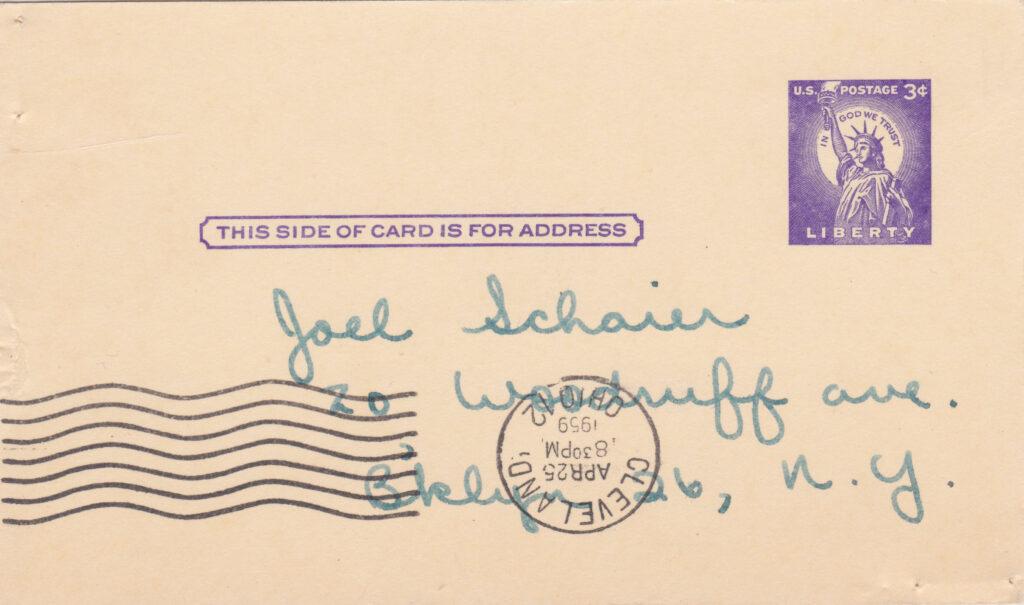 U.S. POSTAGE 3¢
IN GOD WE TRUST
LIBERTY
THIS SIDE OF CARD IS FOR ADDRESS
Joel Schaier
20 Woodruff ave.
B'klyn 26, N.Y.
CLEVELAND
APR 25
830PM
1959
OHIO A2